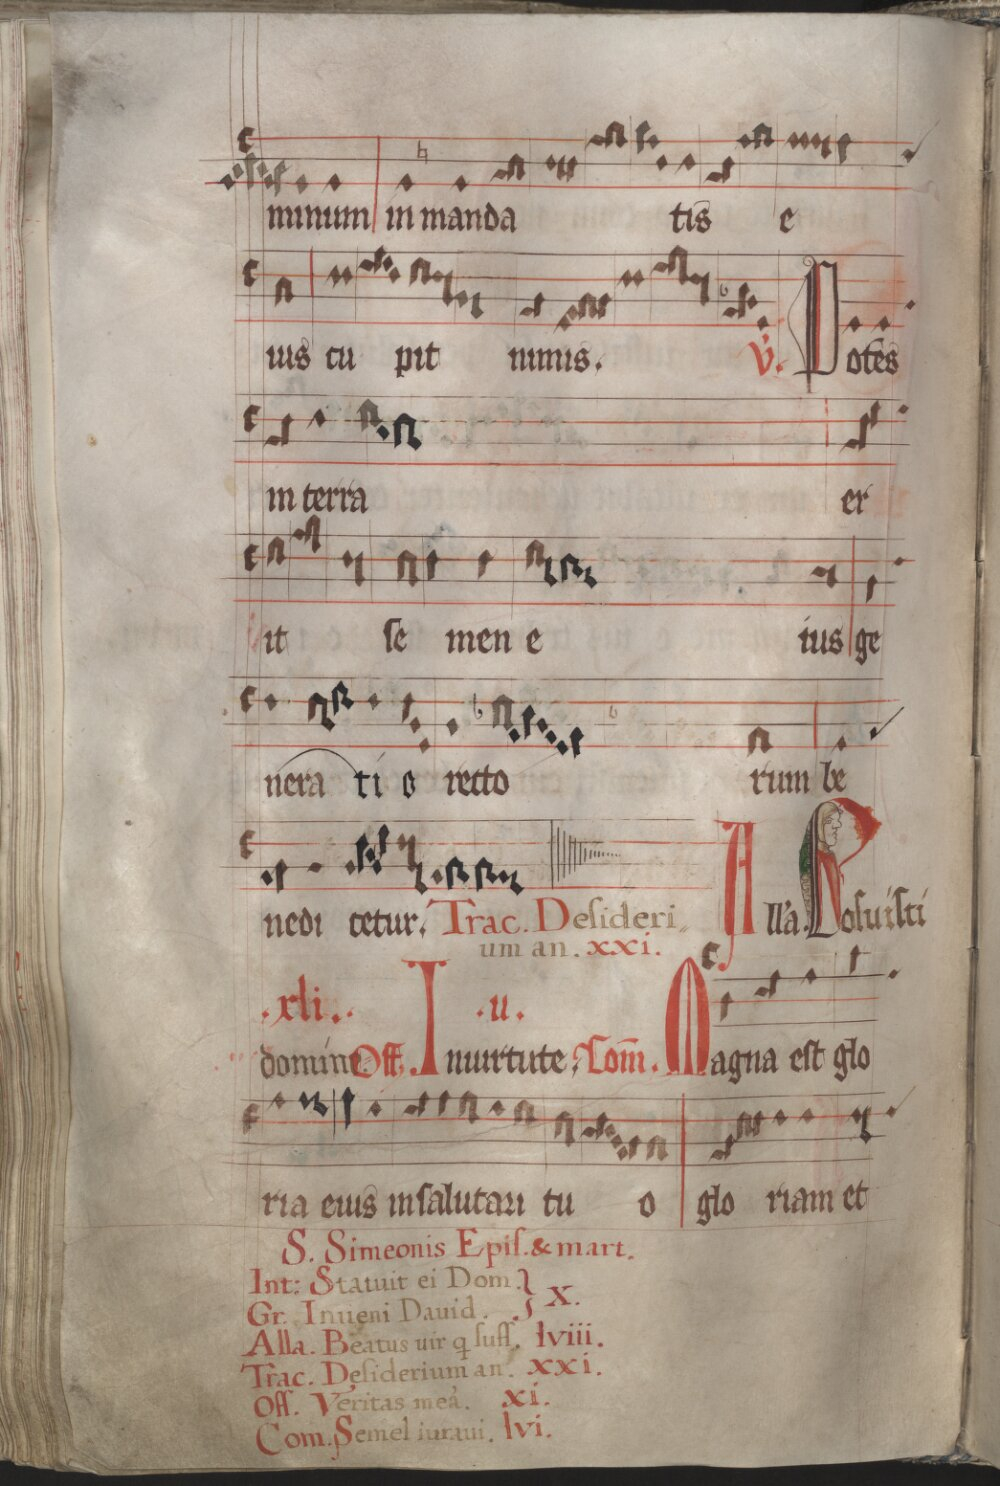 minum in manda tis e
ius cu pit nimis. v. Potēs
in terra er
it se men e ius ge
nera ti o recto rum be
nedi cetur. Trac. Desideri Alla. Posuisti
um an. xxi.
.xli. .ii.
domine Off. In uirtute. Com̄. Magna est glo
ria eius in salutari tu o glo riam et
S. Simeonis Epis. & mart.
Int: Statuit ei Dom.
Gr. Inueni Dauid. X.
Alla. Beatus uir q suff. lviii.
Trac. Desiderium an. xxi.
Off. Veritas mea. xi.
Com. Semel iuraui. lvi.